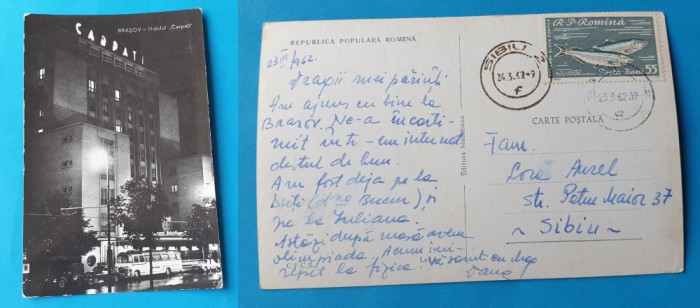 BRAȘOV – Hotelul „Carpați”
CARPAȚI
REPUBLICA POPULARĂ ROMÎNĂ
23 III/1962.
Dragii mei părinți
Am ajuns cu bine la
Brașov. Ne-a încarti-
ruit într-un internat
destul de bun.
Am fost deja pe la
(d-na Bucur) și
pe la Iuliana.
Astăzi după masă avem
olimpiada. Acum mi-
repet la fizica. Vă sărut cu drag
C.P.C.S.
Editura Meridiane
R.P. Romînă
Posta
55
SIBIU
24.3.62-9
f
23.3.62
CARTE POȘTALĂ
Fam.
Aurel
str. Petru Maior 37
~ Sibiu ~